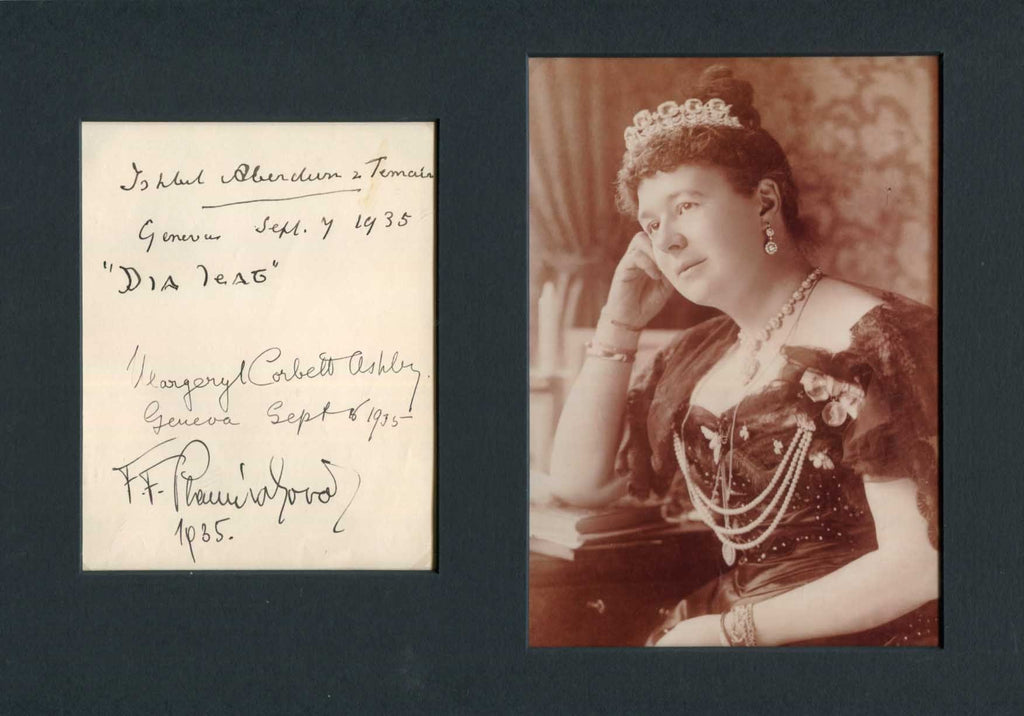 Ishbel Aberdeen & Temair
Geneva Sept. 7 1935
"
Margery I Corbett Ashby
Geneva Sept 6 1935
F. F.
1935.